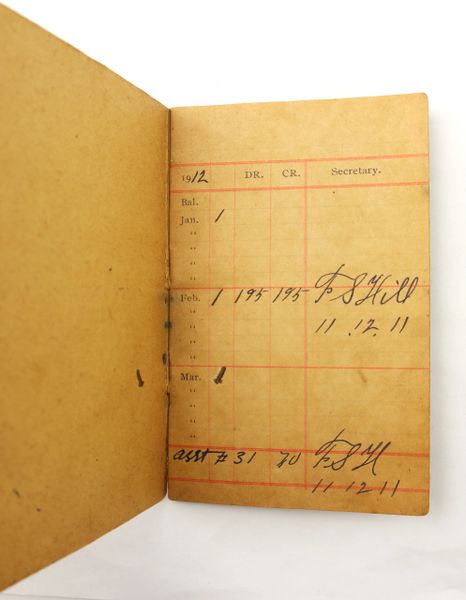 1912 DR. CR. Secretary.
Bal.
Jan. 1
"
"
"
"
Feb. 1 195 195 F S Hill
" 11.12.11
"
"
"
Mar. 1
"
"
"
"
asst # 31 70 F S H
11 12 11